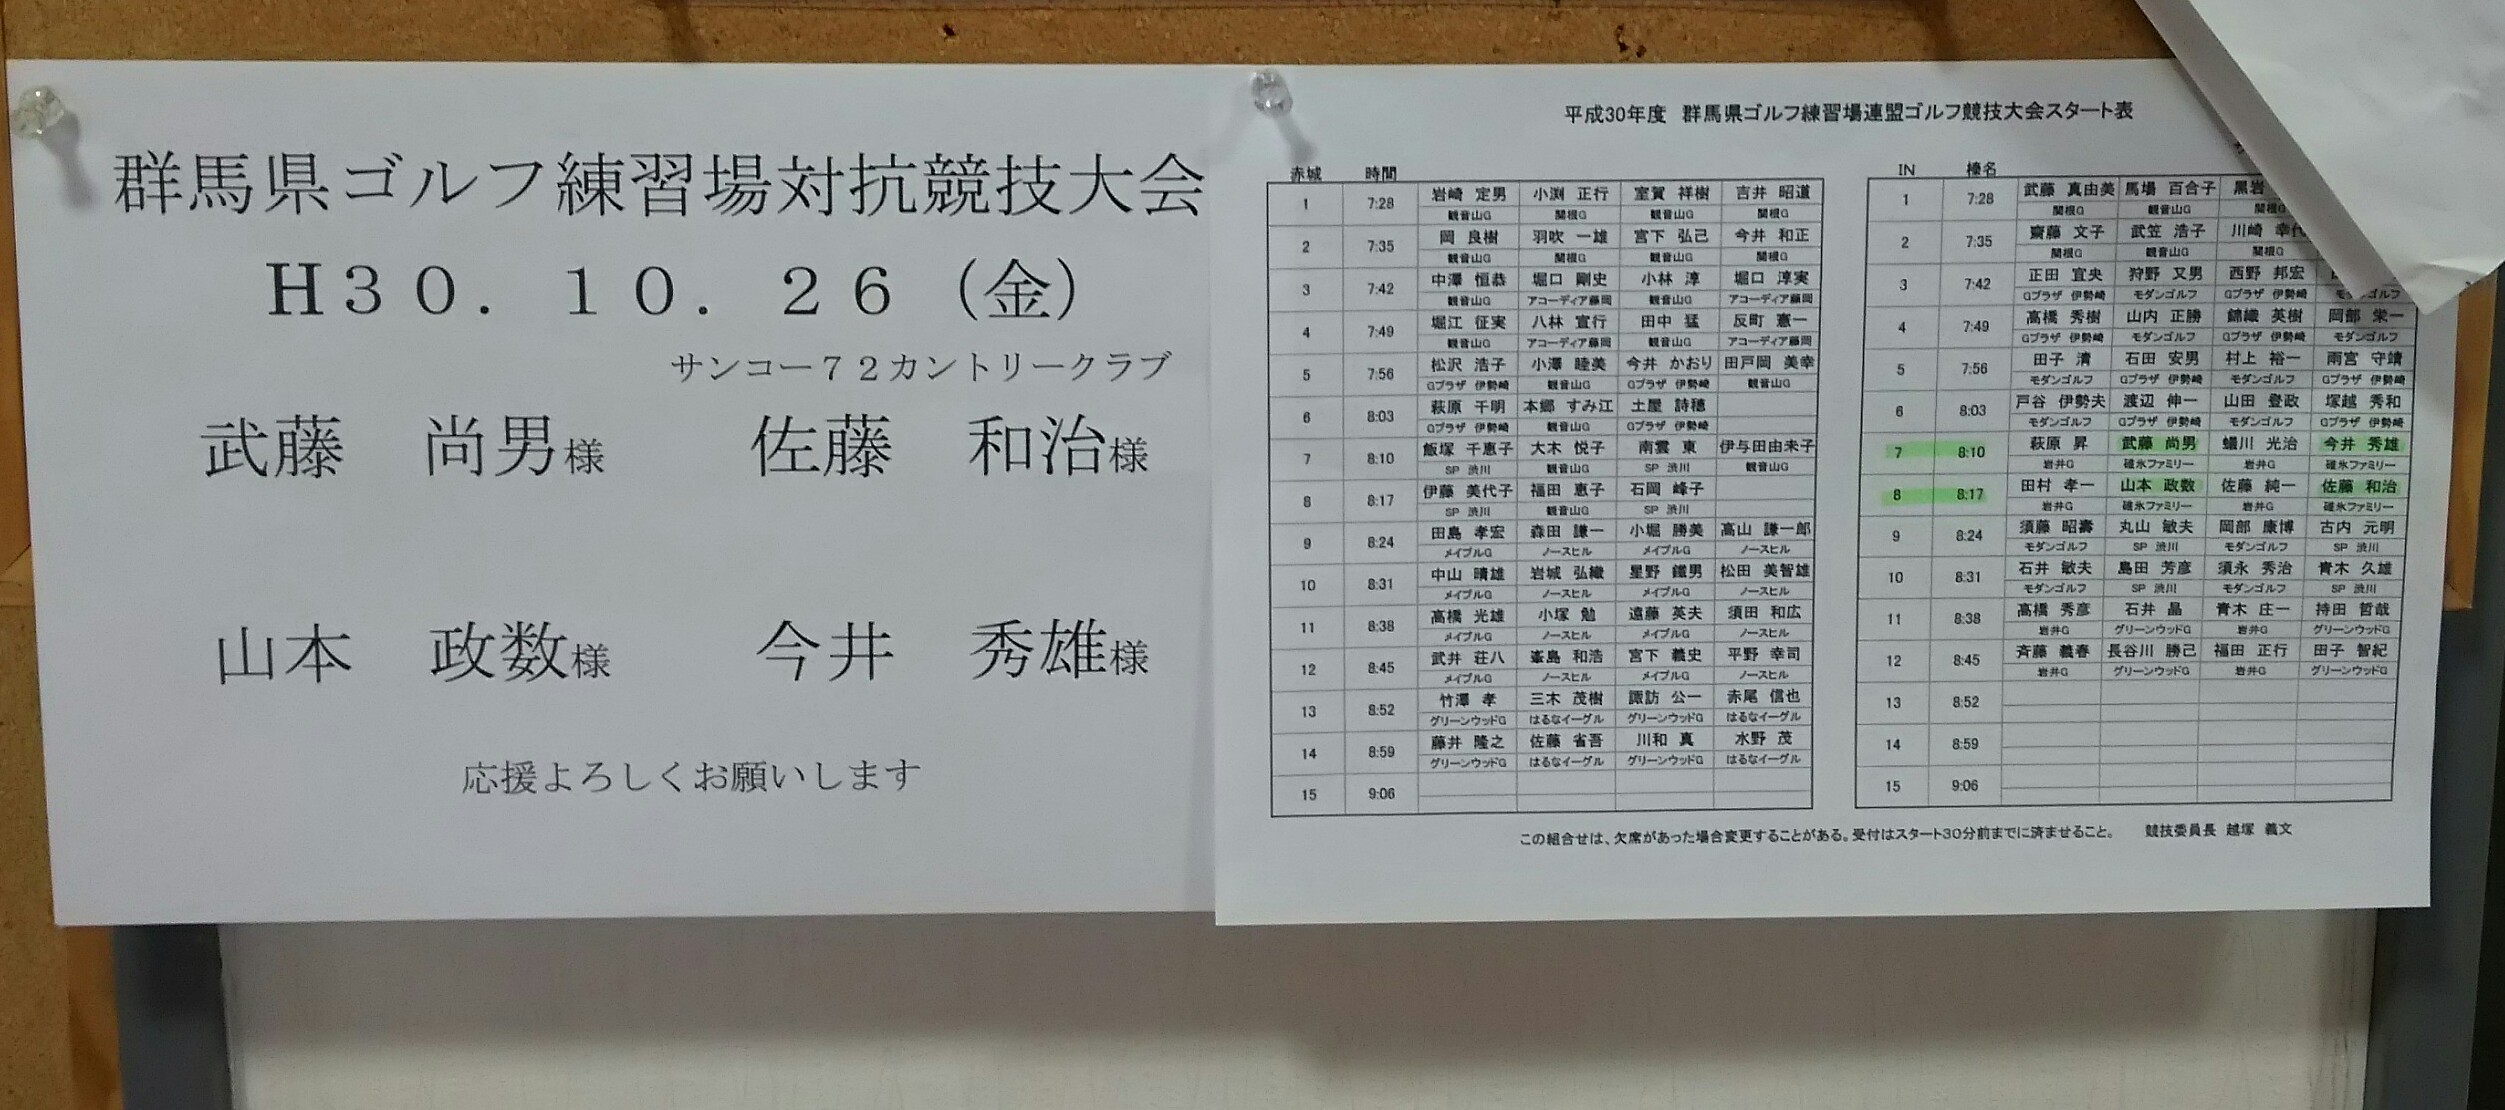 群馬県ゴルフ練習場対抗競技大会
H30. 10. 26 (金)
サンコー72カントリークラブ
武藤 尚男様 佐藤 和治様
山本 政数様 今井 秀雄様
応援よろしくお願いします
平成30年度 群馬県ゴルフ練習場連盟ゴルフ競技大会スタート表
赤城 時間
1 7:28 岩崎 定男 小渕 正行 室賀 祥樹 吉井 昭道
観音山G 関根G 観音山G 関根G
2 7:35 岡 良樹 羽吹 一雄 宮下 弘己 今井 和正
観音山G 関根G 観音山G 関根G
3 7:42 中澤 恒恭 堀口 剛史 小林 淳 堀口 淳実
観音山G アコーディア藤岡 観音山G アコーディア藤岡
4 7:49 堀江 征実 八林 宣行 田中 猛 反町 憲一
観音山G アコーディア藤岡 観音山G アコーディア藤岡
5 7:56 松沢 浩子 小澤 睦美 今井 かおり 田戸岡 美幸
Gプラザ 伊勢崎 観音山G Gプラザ 伊勢崎 観音山G
6 8:03 萩原 千明 本郷 すみ江 土屋 詩穂
Gプラザ 伊勢崎 観音山G Gプラザ 伊勢崎
7 8:10 飯塚 千恵子 大木 悦子 南雲 東 伊与田由未子
SP 渋川 観音山G SP 渋川 観音山G
8 8:17 伊藤 美代子 福田 恵子 石岡 峰子
SP 渋川 観音山G SP 渋川
9 8:24 田島 孝宏 森田 謙一 小堀 勝美 高山 謙一郎
メイプルG ノースヒル メイプルG ノースヒル
10 8:31 中山 晴雄 岩城 弘織 星野 鐵男 松田 美智雄
メイプルG ノースヒル メイプルG ノースヒル
11 8:38 高橋 光雄 小塚 勉 遠藤 英夫 須田 和広
メイプルG ノースヒル メイプルG ノースヒル
12 8:45 武井 荘八 峯島 和浩 宮下 義史 平野 幸司
メイプルG ノースヒル メイプルG ノースヒル
13 8:52 竹澤 孝 三木 茂樹 諏訪 公一 赤尾 信也
グリーンウッドG はるなイーグル グリーンウッドG はるなイーグル
14 8:59 藤井 隆之 佐藤 省吾 川和 真 水野 茂
グリーンウッドG はるなイーグル グリーンウッドG はるなイーグル
15 9:06
IN 榛名
1 7:28 武藤 真由美 馬場 百合子 黒岩
関根G 観音山G 関根G
2 7:35 齋藤 文子 武笠 浩子 川崎 幸代
関根G 観音山G 関根G
3 7:42 正田 宜央 狩野 又男 西野 邦宏
Gプラザ 伊勢崎 モダンゴルフ Gプラザ 伊勢崎 モダンゴルフ
4 7:49 高橋 秀樹 山内 正勝 錦織 英樹 岡部 栄一
Gプラザ 伊勢崎 モダンゴルフ Gプラザ 伊勢崎 モダンゴルフ
5 7:56 田子 清 石田 安男 村上 裕一 雨宮 守靖
モダンゴルフ Gプラザ 伊勢崎 モダンゴルフ Gプラザ 伊勢崎
6 8:03 戸谷 伊勢夫 渡辺 伸一 山田 登政 塚越 秀和
モダンゴルフ Gプラザ 伊勢崎 モダンゴルフ Gプラザ 伊勢崎
7 8:10 萩原 昇 武藤 尚男 蟻川 光治 今井 秀雄
岩井G 碓氷ファミリー 岩井G 碓氷ファミリー
8 8:17 田村 孝一 山本 政数 佐藤 純一 佐藤 和治
岩井G 碓氷ファミリー 岩井G 碓氷ファミリー
9 8:24 須藤 昭壽 丸山 敏夫 岡部 康博 古内 元明
モダンゴルフ SP 渋川 モダンゴルフ SP 渋川
10 8:31 石井 敏夫 島田 芳彦 須永 秀治 青木 久雄
モダンゴルフ SP 渋川 モダンゴルフ SP 渋川
11 8:38 高橋 秀彦 石井 晶 青木 庄一 持田 哲哉
岩井G グリーンウッドG 岩井G グリーンウッドG
12 8:45 斉藤 義春 長谷川 勝己 福田 正行 田子 智紀
岩井G グリーンウッドG 岩井G グリーンウッドG
13 8:52
14 8:59
15 9:06
この組合せは、欠席があった場合変更することがある。受付はスタート30分前までに済ませること。 競技委員長 越塚 義文